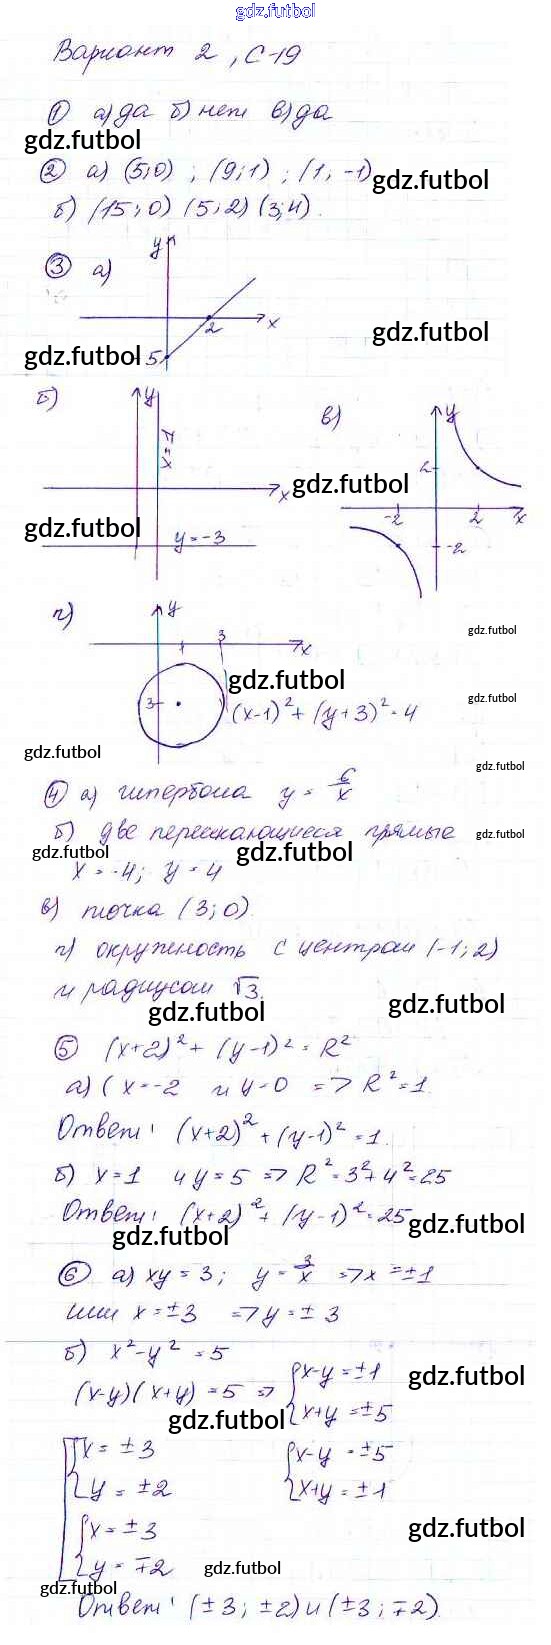 gdz.futbol
Вариант 2, С-19
① а) да б) нет в) да
gdz.futbol
② а) (5;0) ; (9;1) ; (1, -1)
gdz.futbol
б) (15;0) (5;2) (3;4).
③ а)
y
2
x
gdz.futbol
gdz.futbol
5
б)
y
x=1
в)
y
2
x
gdz.futbol
-2
2
x
gdz.futbol
y=-3
-2
г)
y
1
3
x
gdz.futbol
gdz.futbol
3
(x-1)² + (y+3)² = 4
gdz.futbol
gdz.futbol
gdz.futbol
④ а) гипербола y = 6/x
б) две пересекающиеся прямые
gdz.futbol
gdz.futbol
gdz.futbol
x = -4; y = 4
в) точка (3; 0).
г) окружность с центром (-1; 2)
и радиусом √3.
gdz.futbol
gdz.futbol
⑤ (x+2)² + (y-1)² = R²
а) (x=-2 и y=0 => R²=1.
Ответ: (x+2)² + (y-1)² = 1.
б) x=1 и y=5 => R²=3²+4²=25
Ответ: (x+2)² + (y-1)² = 25
gdz.futbol
gdz.futbol
⑥ а) xy = 3; y = 3/x => x = ±1
или x = ±3 => y = ± 3
б) x² - y² = 5
(x-y)(x+y) = 5 => { x-y = ±1
x+y = ±5
gdz.futbol
gdz.futbol
[ { x = ±3
y = ±2
{ x-y = ±5
x+y = ±1
{ x = ±3
y = ∓2
gdz.futbol
gdz.futbol
gdz.futbol
Ответ: (±3; ±2) и (±3; ∓2).